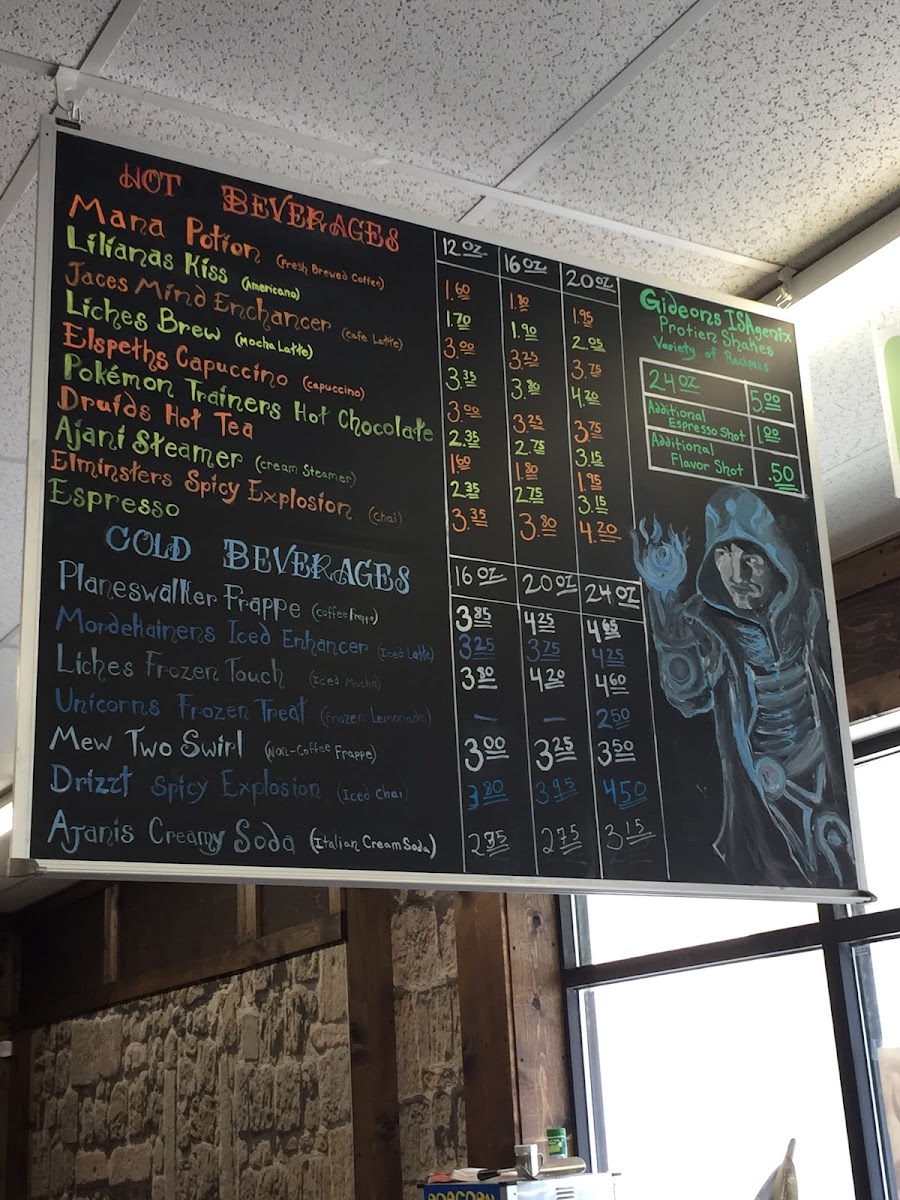 HOT BEVERAGES 12 oz 16 oz 20 oz
Mana Potion (Fresh Brewed Coffee) 1.60 1.80 1.95
Lilianas Kiss (Americano) 1.70 1.90 2.05
Jaces Mind Enchancer (Cafe Latte) 3.00 3.25 3.75
Liches Brew (Mocha Latte) 3.35 3.80 4.20
Elspeths Capuccino (capuccino) 3.00 3.25 3.75
Pokémon Trainers Hot Chocolate 2.35 2.75 3.15
Druids Hot Tea 1.60 1.80 1.95
Ajani Steamer (cream Steamer) 2.35 2.75 3.15
Elminsters Spicy Explosion (Chai) 3.35 3.80 4.20
Espresso
COLD BEVERAGES 16 oz 20 oz 24 oz
Planeswalker Frappe (coffee Frappe) 3.85 4.25 4.65
Mordehainens Iced Enhancer (Iced Latte) 3.25 3.75 4.25
Liches Frozen Touch (Iced Mocha) 3.80 4.20 4.60
Unicorns Frozen Treat (Frozen Lemonade) — — 2.50
Mew Two Swirl (Non-Coffee Frappe) 3.00 3.25 3.50
Drizzt Spicy Explosion (Iced Chai) 3.80 3.95 4.50
Ajanis Creamy Soda (Italian Cream Soda) 2.75 3.15
Gideons ISAgenix
Protien Shakes
Variety of Recipies
24 oz 5.00
Additional
Espresso Shot 1.00
Additional
Flavor Shot .50
POPCORN